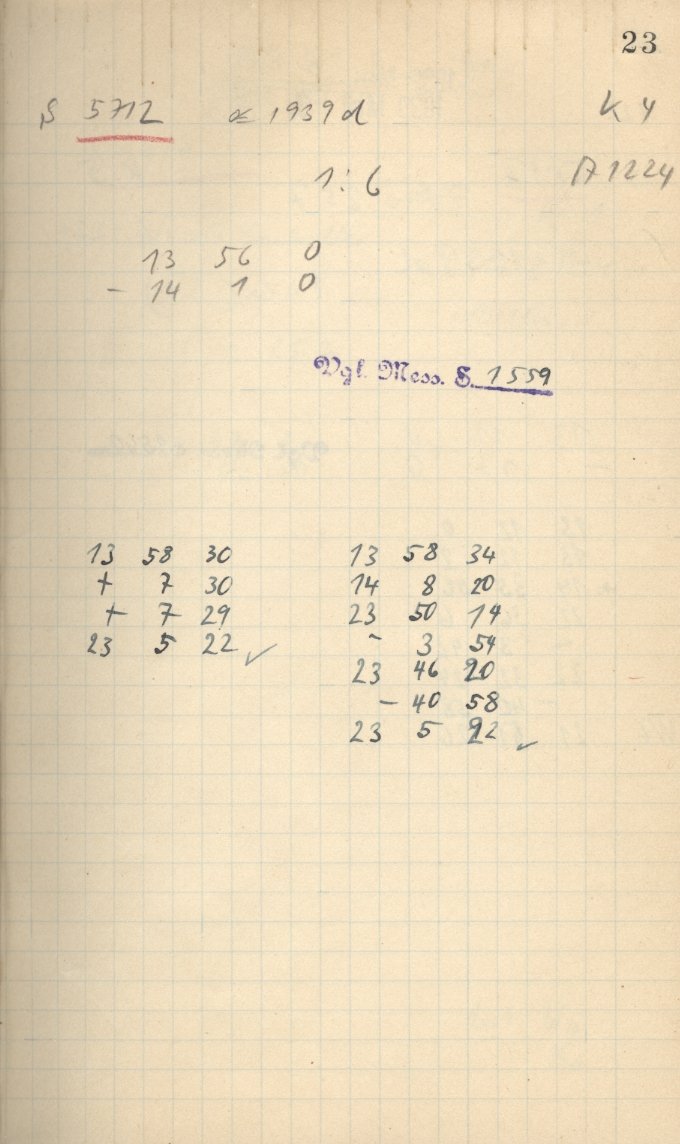 23
S 5712 α 1939 d K 4
1:6 A 1224
13 56 0
- 14 1 0
Vgl. Mess. S. 1559
13 58 30
+ 7 30
+ 7 29
23 5 22 ✓
13 58 34
14 8 20
23 50 14
- 3 54
23 46 20
- 40 58
23 5 22 ✓